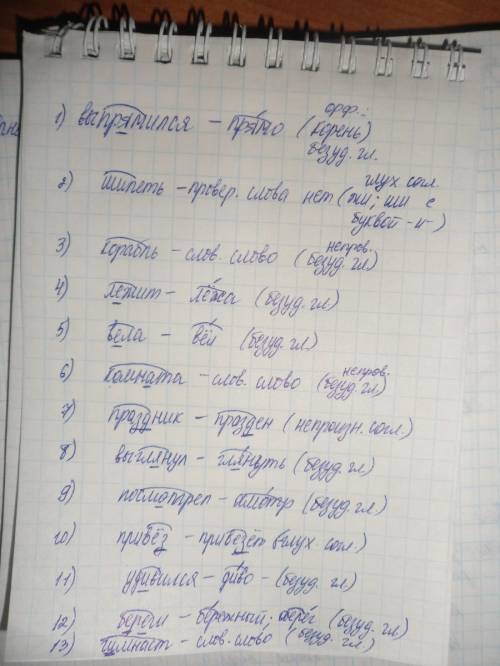 орф.:
1) вапрямился – прямо (корень)
безуд. гл.
глух. согл.
2) шипеть – провер. слова нет (жи; ши с
буквой -и-)
непров.
3) корабль – слов. слово (безуд. гл)
4) лежит – лёжа (безуд. гл)
5) вела – вёл (безуд. гл.)
непров.
6) комната – слов. слово (безуд. гл)
7) праздник – празден (непроизн. согл.)
8) выглянул – глянуть (безуд. гл)
9) посмотрел – смотр (безуд. гл)
10) привёз – привезёт глух. согл.)
11) удивился – диво – (безуд. гл)
12) береги – бережный; оберег (безуд. гл)
13) гимнаст – слов. слово (безуд. гл.)